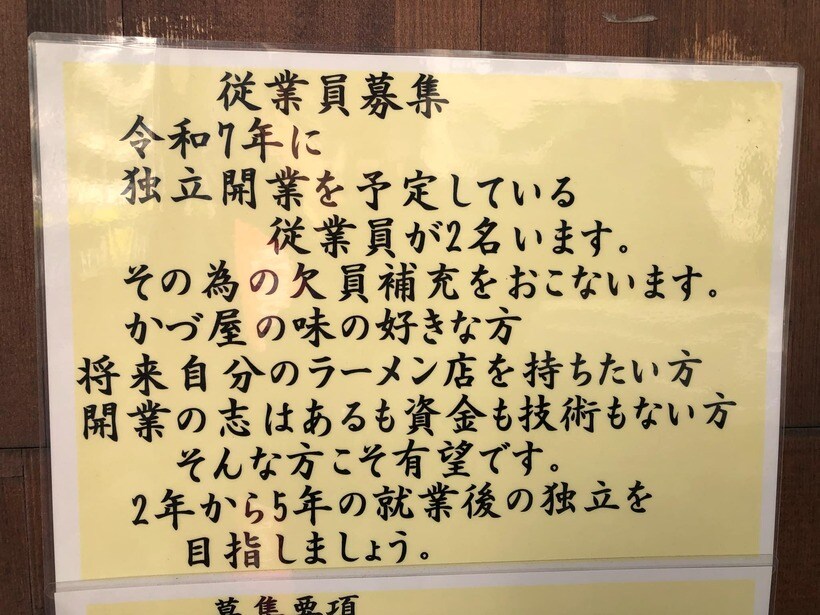 従業員募集
令和7年に
独立開業を予定している
従業員が2名います。
その為の欠員補充をおこないます。
かづ屋の味の好きな方
将来自分のラーメン店を持ちたい方
開業の志はあるも資金も技術もない方
そんな方こそ有望です。
2年から5年の就業後の独立を
目指しましょう。
募集要項